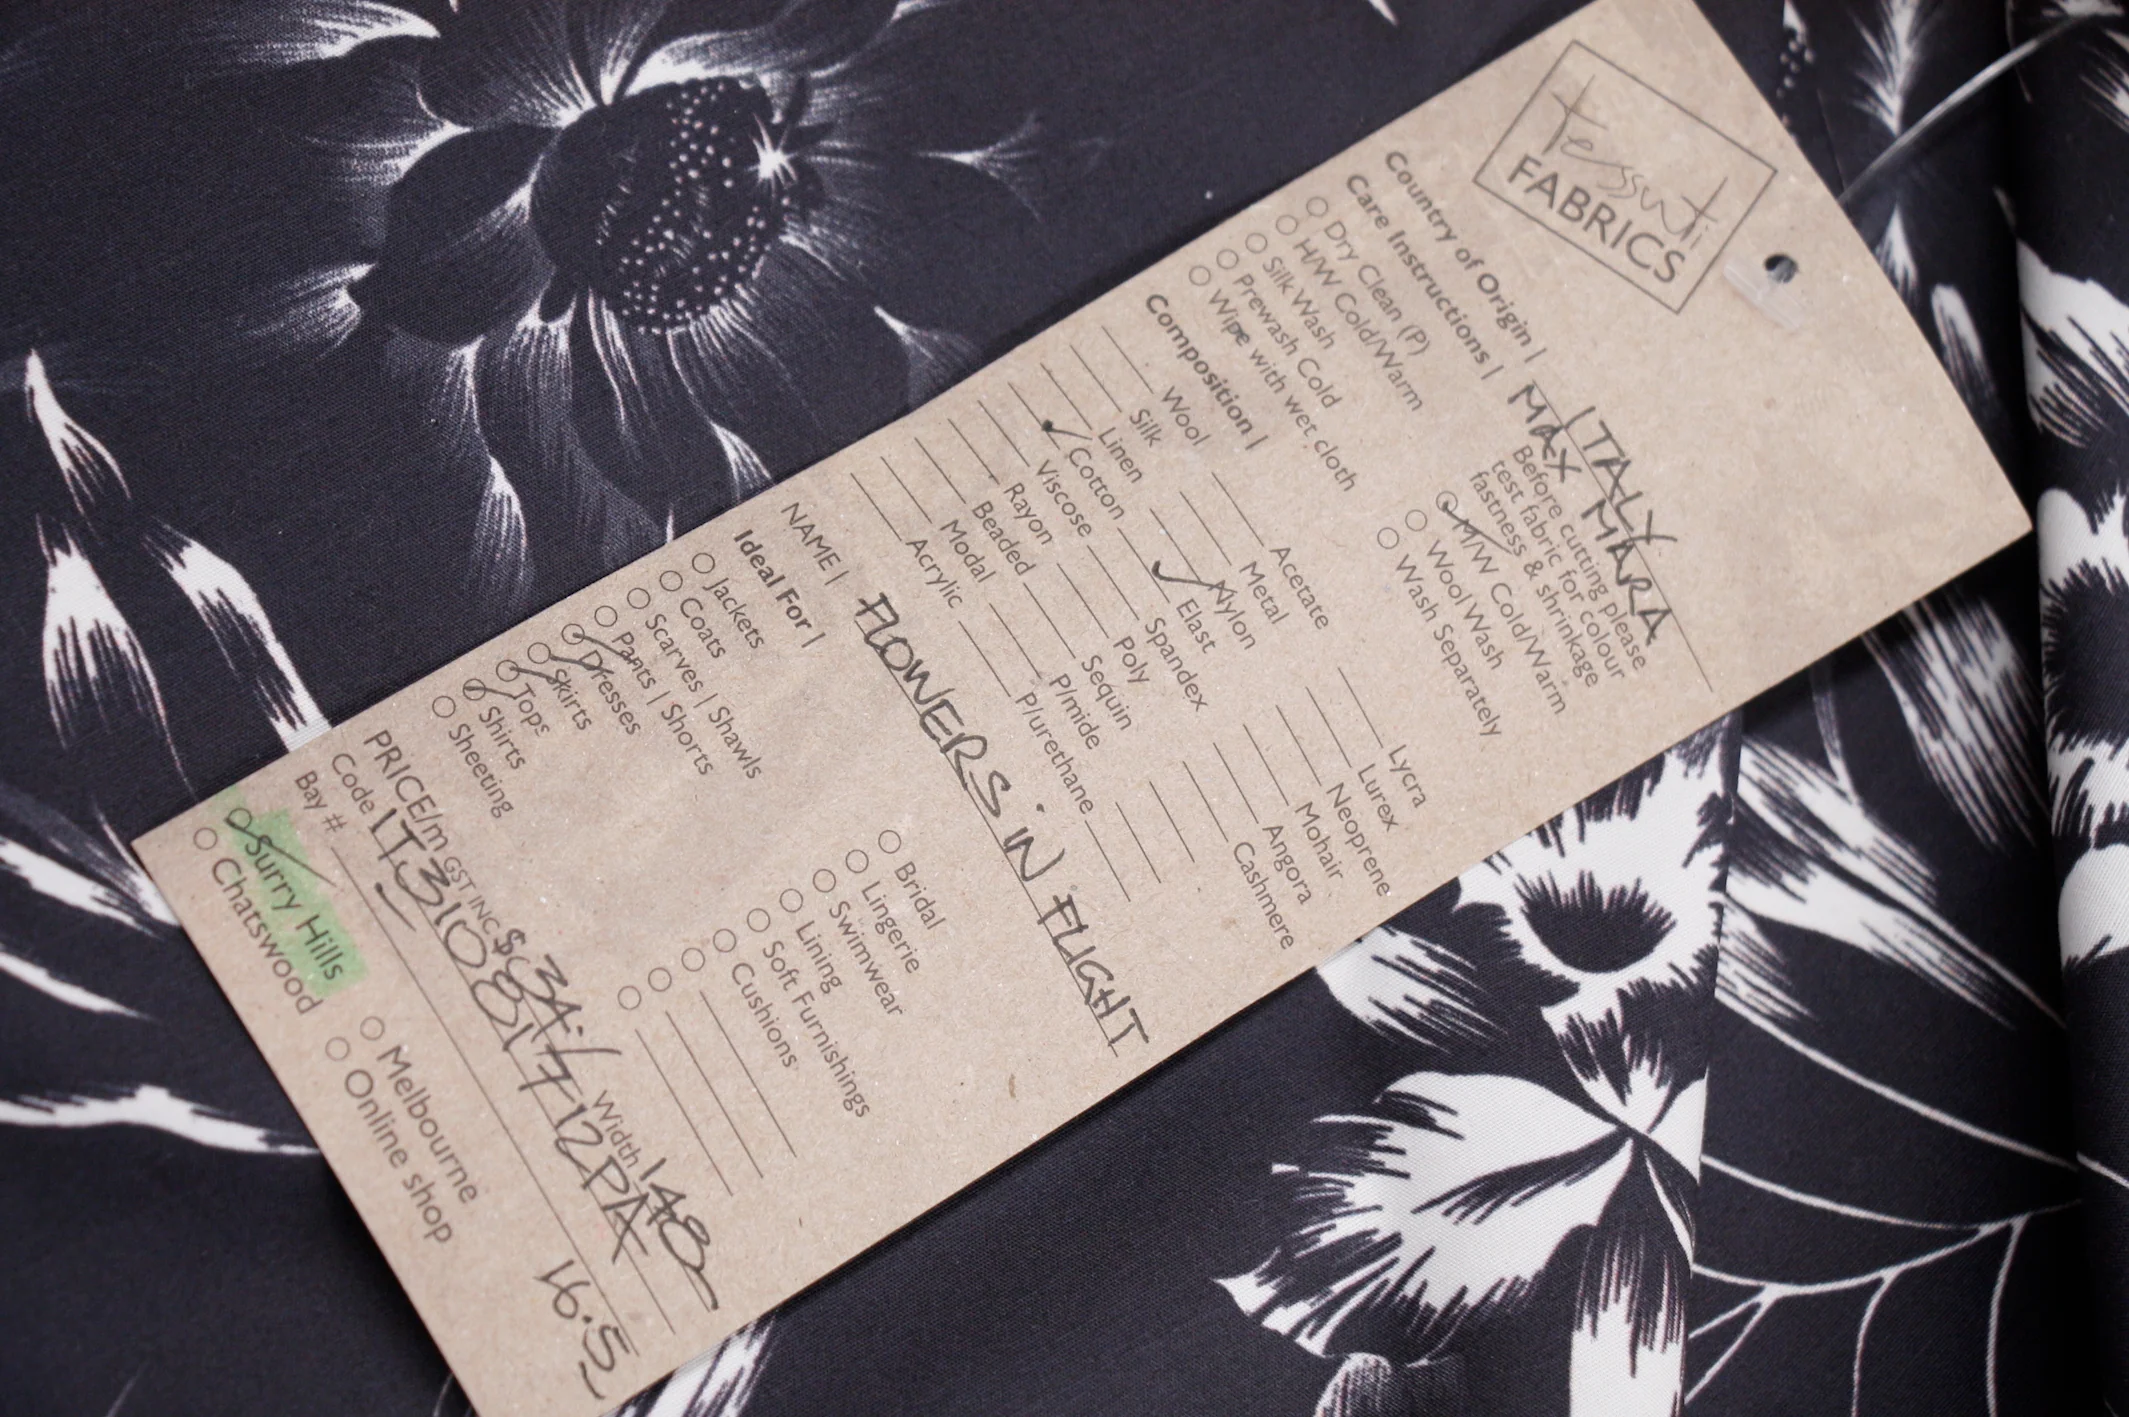 tessuti
FABRICS
Country of Origin | ITALY
MAX MARA
Care Instructions | Before cutting please
test fabric for colour
fastness & shrinkage
Dry Clean (P)
H/W Cold/Warm
Silk Wash
Prewash Cold
Wipe with wet cloth
M/W Cold/Warm
Wool Wash
Wash Separately
Composition |
Wool
Silk
Linen
Cotton
Viscose
Rayon
Beaded
Modal
Acrylic
Acetate
Metal
Nylon
Elast
Spandex
Poly
Sequin
P/mide
P/urethane
Lycra
Lurex
Neoprene
Mohair
Angora
Cashmere
NAME | FLOWERS IN FLIGHT
Ideal For |
Jackets
Coats
Scarves | Shawls
Pants | Shorts
Dresses
Skirts
Tops
Shirts
Sheeting
Bridal
Lingerie
Swimwear
Lining
Soft Furnishings
Cushions
PRICE/m GST INC $34.- Width 148
Code IT31081712PA
Bay # 16.5
Surry Hills
Chatswood
Melbourne
Online shop